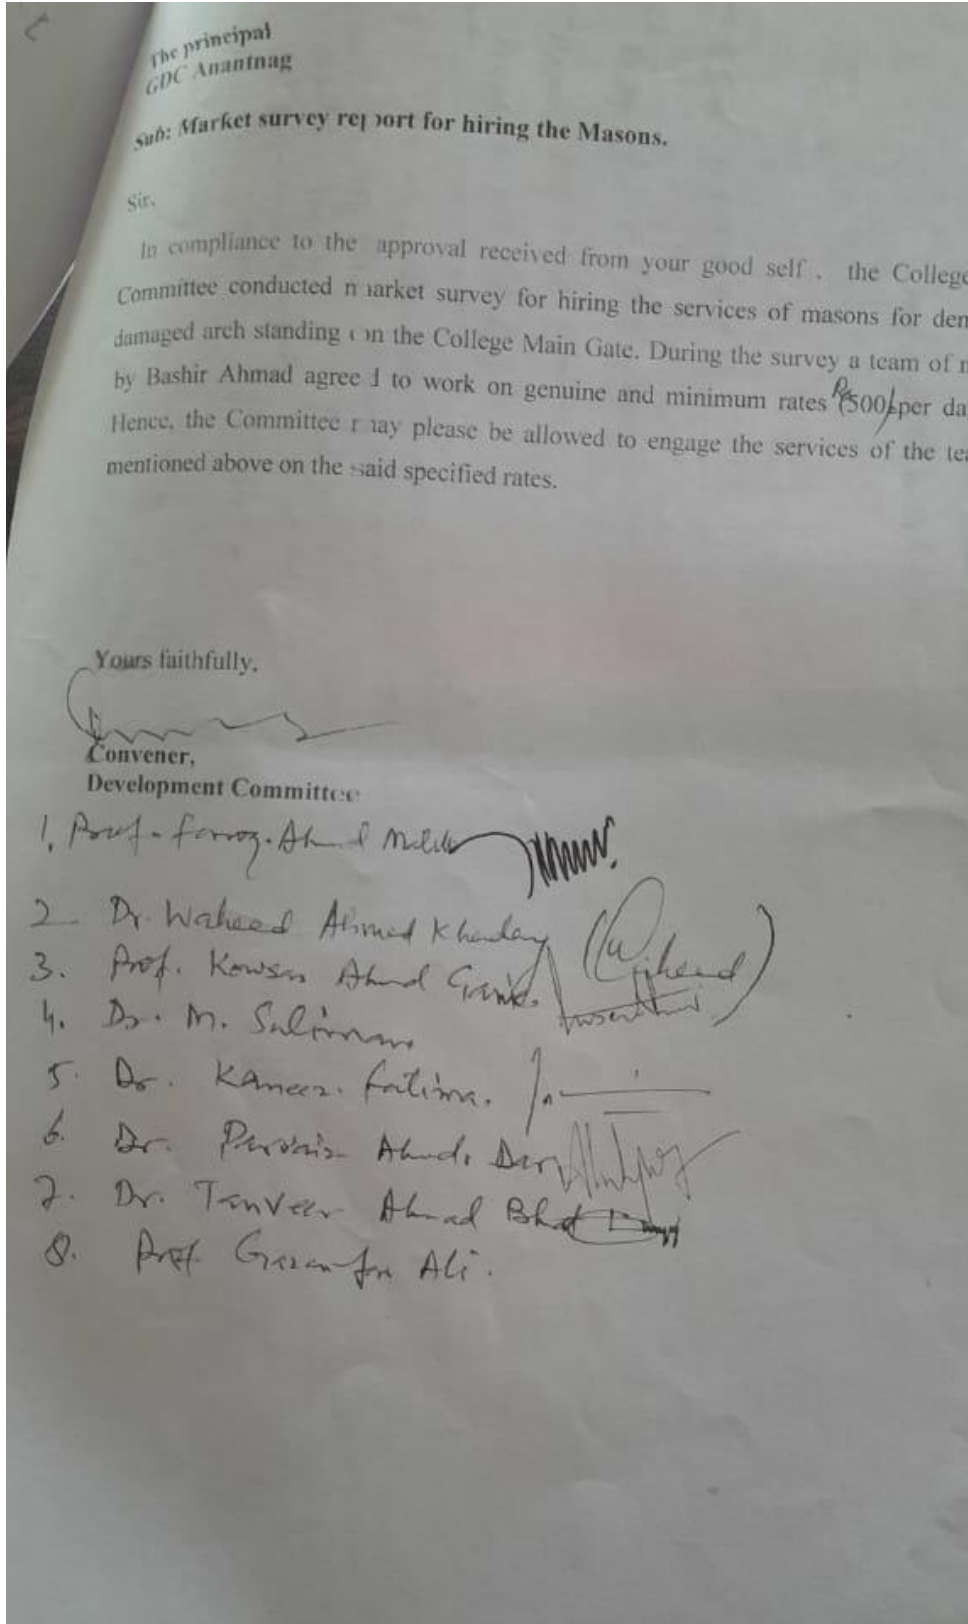 The principal
GDC Anantnag
Sub: Market survey report for hiring the Masons.
Sir,
In compliance to the approval received from your good self , the College
Committee conducted market survey for hiring the services of masons for dem
damaged arch standing on the College Main Gate. During the survey a team of m
by Bashir Ahmad agreed to work on genuine and minimum rates Rs 500/- per da
Hence, the Committee may please be allowed to engage the services of the tea
mentioned above on the said specified rates.
Yours faithfully,
Convener,
Development Committee
1. Prof. Ahmad
2. Dr. Waheed Ahmad Khanday (Waheed)
3. Prof. Ahmad Ganie
4. Dr. M. Suliman
5. Dr. Kaneez. Fatima.
6. Dr. Parvaiz Ahmad Dar
7. Dr. Tanveer Ahmad Bhat
8. Prof. Gazanfar Ali.